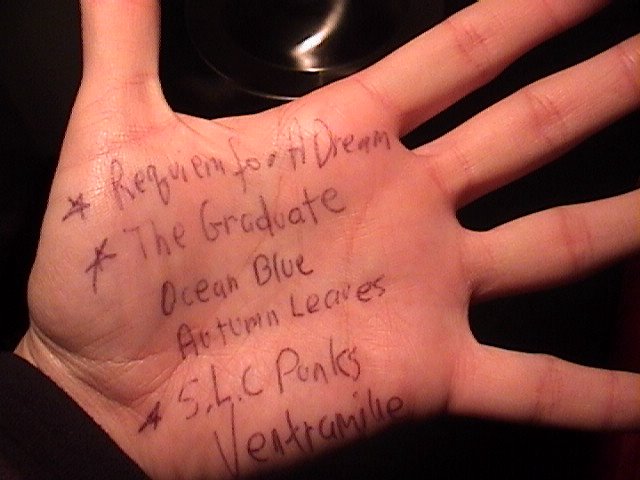 * Requiem for A Dream
* The Graduate
Ocean Blue
Autumn Leaves
* S.L.C Punks